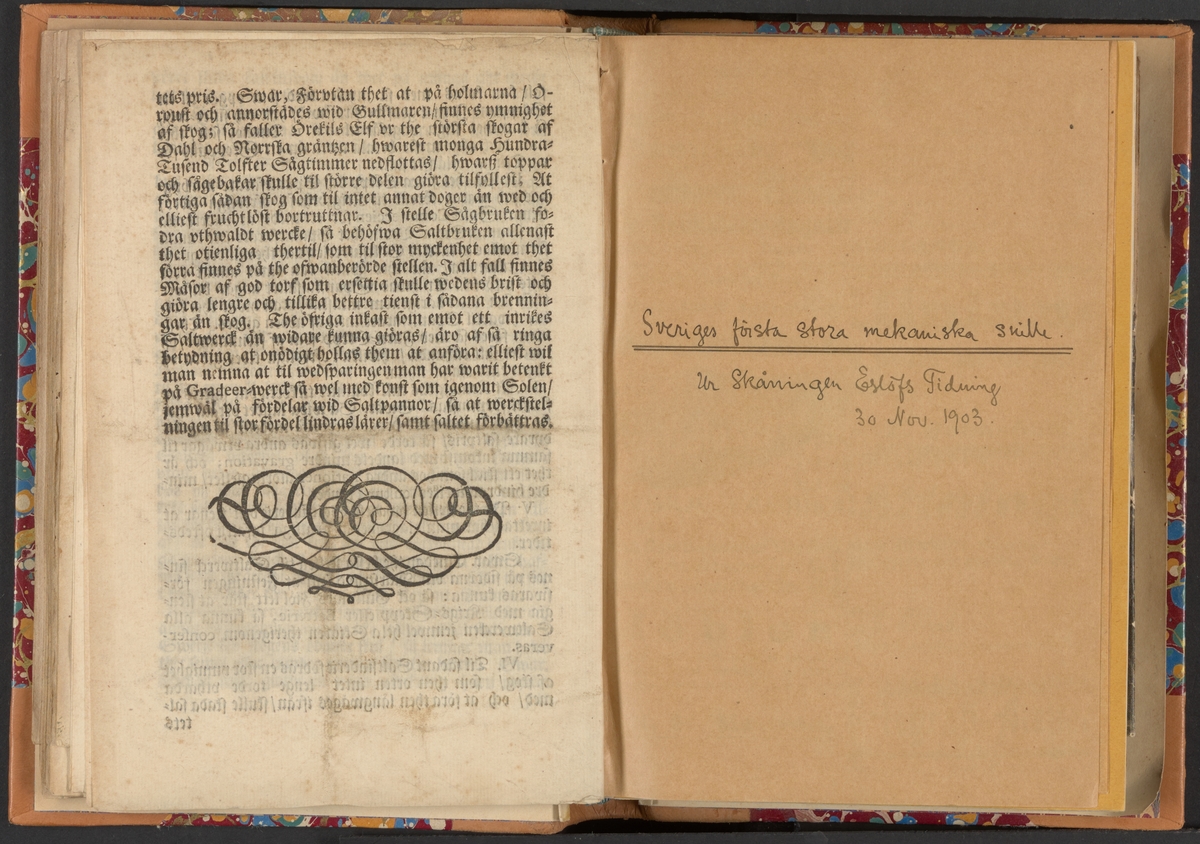 tets pris. Swar, Förvtan thet at på holmarna / O-
roust och annorstädes wid Gullmaren / finnes ymnighet
af skog; så faller Örekils Elf vr the största skogar af
Dahl och Norrska gräntzen / hwarest monga Hundra-
Tusend Tolfter Sågtimmer nedflottas / hwarß toppar
och sågebakar skulle til större delen giöra tilfyllest; At
förtiga sådan skog som til intet annat doger än wed och
elliest fruchtlöst bortruttnar. I stelle Sågbruken fo-
dra vthwaldt wercke / så behöfwa Saltbruken allenast
thet otienliga thertil / som til stor myckenhet emot thet
förra finnes på the ofwanberörde stellen. I alt fall finnes
Måsor af god torf som ersettia skulle wedens brist och
giöra lengre och tillika bettre tienst i sådana brennin-
gar än skog. The öfriga inkast som emot ett inrikes
Saltwerck än widare kunna giöras / äro af så ringa
betydning at onödigt hollas them at anföra: elliest wil
man nemna at til wedsparingen man har warit betenkt
på Gradeer-werck så wel med konst som igenom Solen /
jemwäl på fördelar wid Saltpannor / så at werckstel-
ningen til stor fördel lindras lärer / samt saltet förbättras.
Sveriges första stora mekaniska snille.
Ur Skåningen Eslöfs Tidning
30 Nov. 1903.